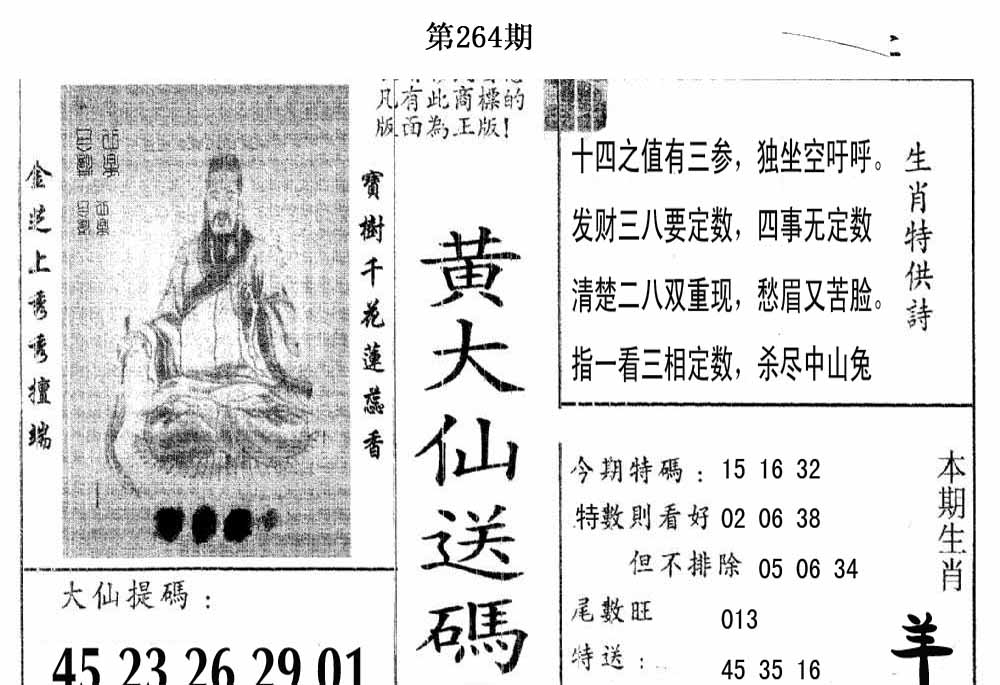 第264期
凡有此商標的
版面為正版!
寶樹千花蓮蕊香
黄大仙送碼
大仙提碼：
45 23 26 29 01
生肖特供詩
十四之值有三参，独坐空吁呼。
发财三八要定数，四事无定数
清楚二八双重现，愁眉又苦脸。
指一看三相定数，杀尽中山兔
今期特碼：15 16 32
特數則看好 02 06 38
但不排除 05 06 34
尾數旺 013
特送：45 35 16
本期生肖
羊